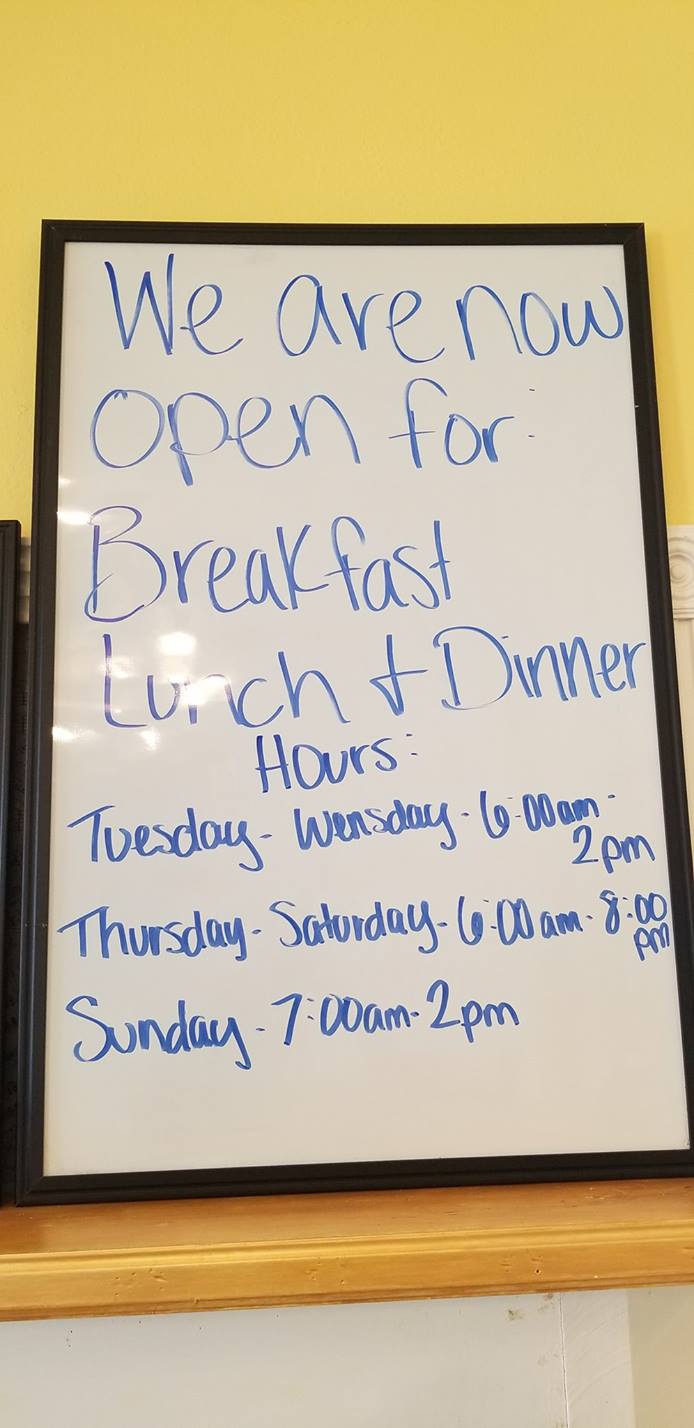 We are now
open for:
Breakfast
Lunch & Dinner
Hours:
Tuesday - Wensday - 6:00am -
2pm
Thursday - Saturday - 6:00am - 8:00
pm
Sunday - 7:00am - 2pm